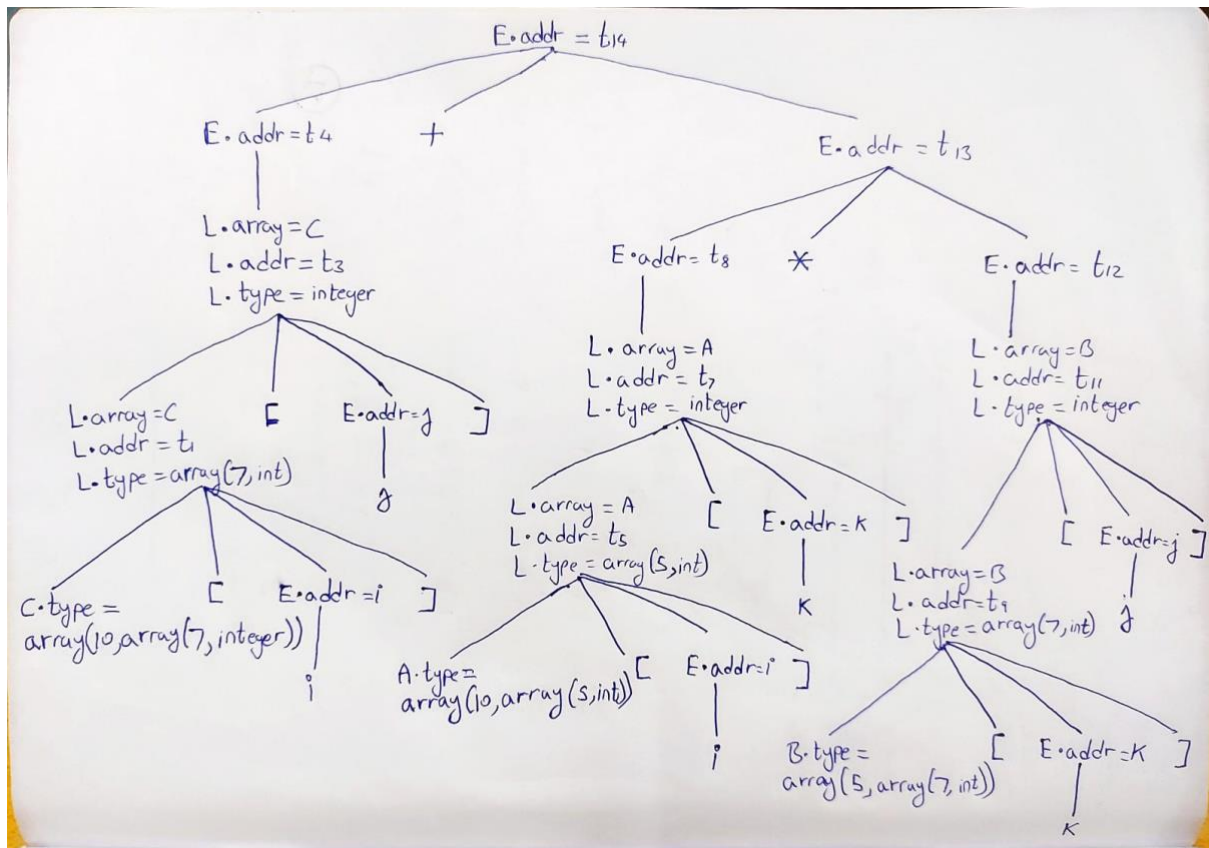 E.addr = t14
E.addr = t4
+
E.addr = t13
L.array = C
L.addr = t3
L.type = integer
E.addr = t8
*
E.addr = t12
L.array = A
L.addr = t7
L.type = integer
L.array = B
L.addr = t11
L.type = integer
L.array = C
L.addr = t1
L.type = array(7,int)
[
E.addr = j
]
j
L.array = A
L.addr = t5
L.type = array(5,int)
[
E.addr = K
]
K
[
E.addr = j
]
j
L.array = B
L.addr = t9
L.type = array(7,int)
C.type =
array(10,array(7,integer))
[
E.addr = i
]
i
A.type =
array(10,array(5,int))
[
E.addr = i
]
i
B.type =
array(5,array(7,int))
[
E.addr = K
]
K